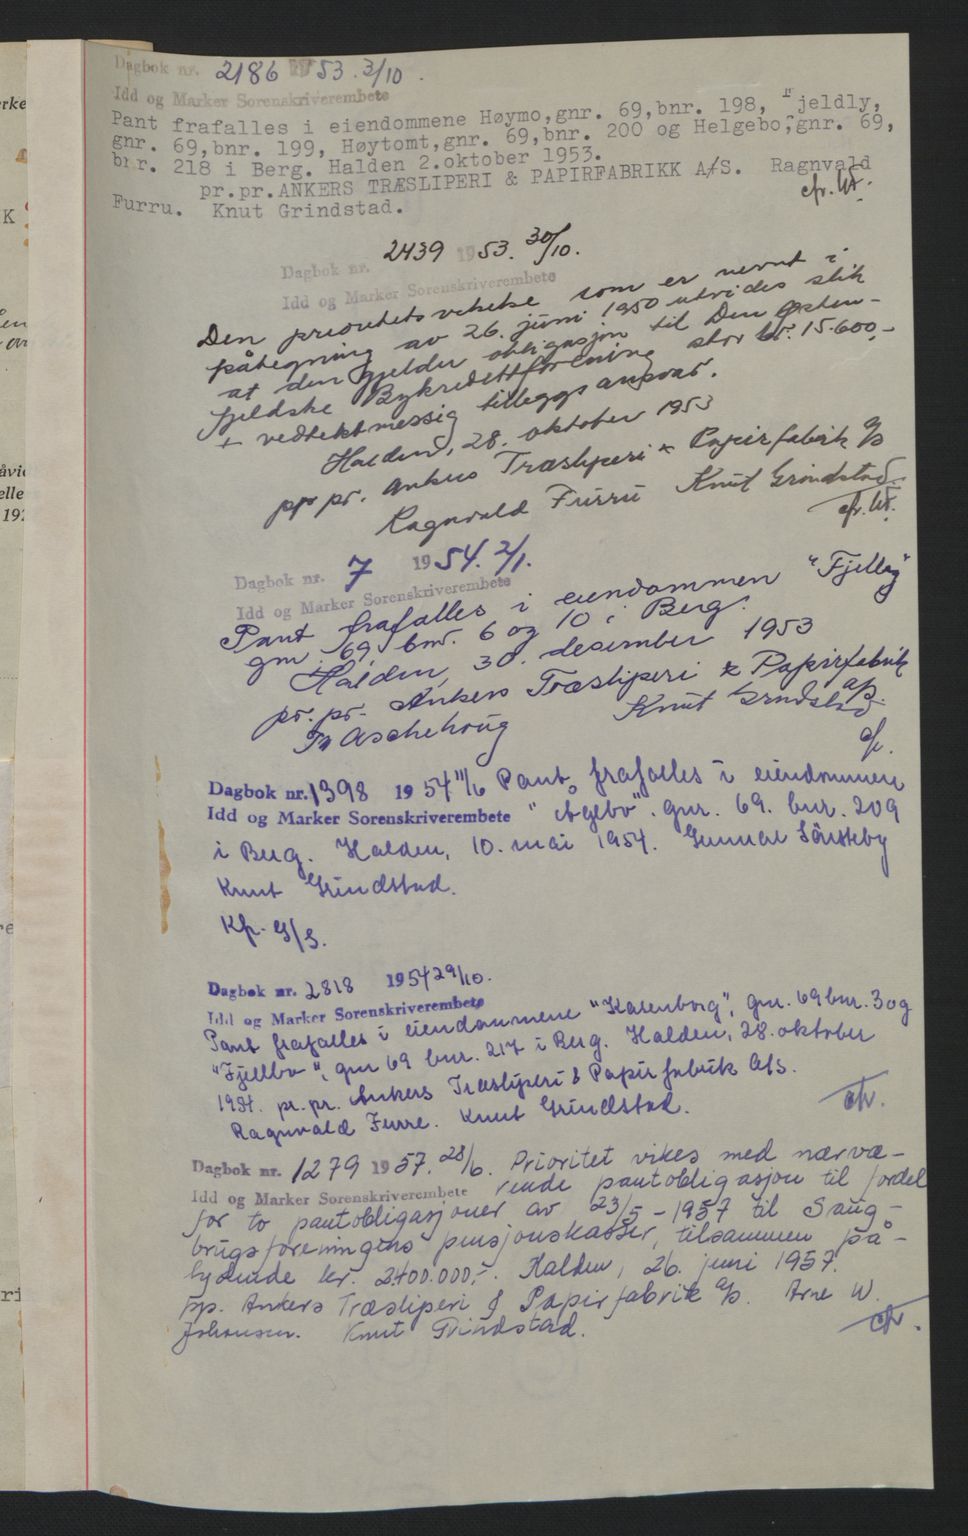 Dagbok nr. 2186 1953. 3/10.
Idd og Marker Sorenskriverembete
Pant frafalles i eiendommene Høymo,gnr. 69,bnr. 198, "jeldly,
gnr. 69,bnr. 199, Høytomt,gnr. 69,bnr. 200 og Helgebo,gnr. 69,
bnr. 218 i Berg. Halden 2.oktober 1953.
pr.pr.ANKERS TRÆSLIPERI & PAPIRFABRIKK A/S. Ragnvald
Furru. Knut Grindstad.
Dagbok nr. 2439 1953. 30/10.
Idd og Marker Sorenskriverembete
Den prioritetsvikelse som er nevnt i
påtegning av 26. juni 1950 utvides slik
at den gjelder obligasjon til Den Østen-
fjeldske Bykredittforening stor kr. 15.600,-
+ vedtektmessig tilleggsansvar.
Halden, 28. oktober 1953
pp pr. Ankers Træsliperi & Papirfabrik A/S
Ragnvald Furru Knut Grindstad
Dagbok nr. 7 1954. 2/1.
Idd og Marker Sorenskriverembete
Pant frafalles i eiendommen "Fjellby"
gnr. 69 bnr. 6 og 10 i Berg.
Halden, 30. desember 1953
pr. pr. Ankers Træsliperi & Papirfabrik
A/S.
Th Aschehoug Knut Grindstad
Dagbok nr. 1398 1954 11/6 Pant frafalles i eiendommen
Idd og Marker Sorenskriverembete "Åglebo". gnr. 69. bnr. 209
i Berg. Halden, 10. mai 1954. Gunnar Sönsteby
Knut Grindstad.
Dagbok nr. 2818 1954 29/10.
Idd og Marker Sorenskriverembete
Pant frafalles i eiendommene "Karenborg", gnr. 69 bnr. 3 og
"Fjellbo", gnr 69 bnr. 217 i Berg. Halden, 28. oktober
1954. pr. pr. Ankers Træsliperi & Papirfabrik A/S.
Ragnvald Furre. Knut Grindstad.
Dagbok nr. 1279 1957. 28/6. Prioritet vikes med nærvæ-
Idd og Marker Sorenskriverembete rende pantobligasjon til fordel
for to pantobligasjoner av 23/5-1957 til Saug-
brugsforeningens pensjonskasser, tilsammen på-
lydende kr. 2.400.000,-. Halden, 26. juni 1957.
pp. Ankers Træsliperi & Papirfabrik A/S. Arne W.
Johansen. Knut Grindstad.